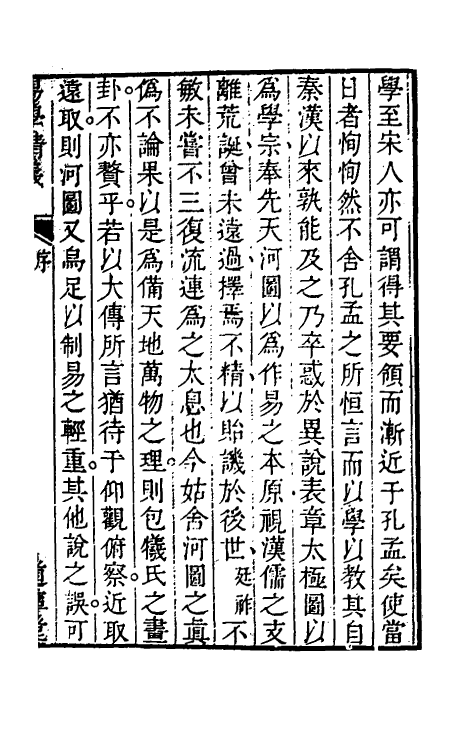 學至宋人亦可謂得其要領而漸近于孔孟矣使當
日者恂恂然不舍孔孟之所恒言而以學以教其自
秦漢以來孰能及之乃卒惑於異說表章太極圖以
為學宗奉先天河圖以為作易之本原視漢儒之支
離荒誕曾未遠過擇焉不精以貽譏於後世廷祚不
敏未嘗不三復流連為之太息也今姑舍河圖之真
偽不論果以是為備天地萬物之理則包犧氏之畫
卦不亦贅乎若以大傳所言猶待于仰觀俯察近取
遠取則河圖又烏足以制易之輕重其他說之誤可
序